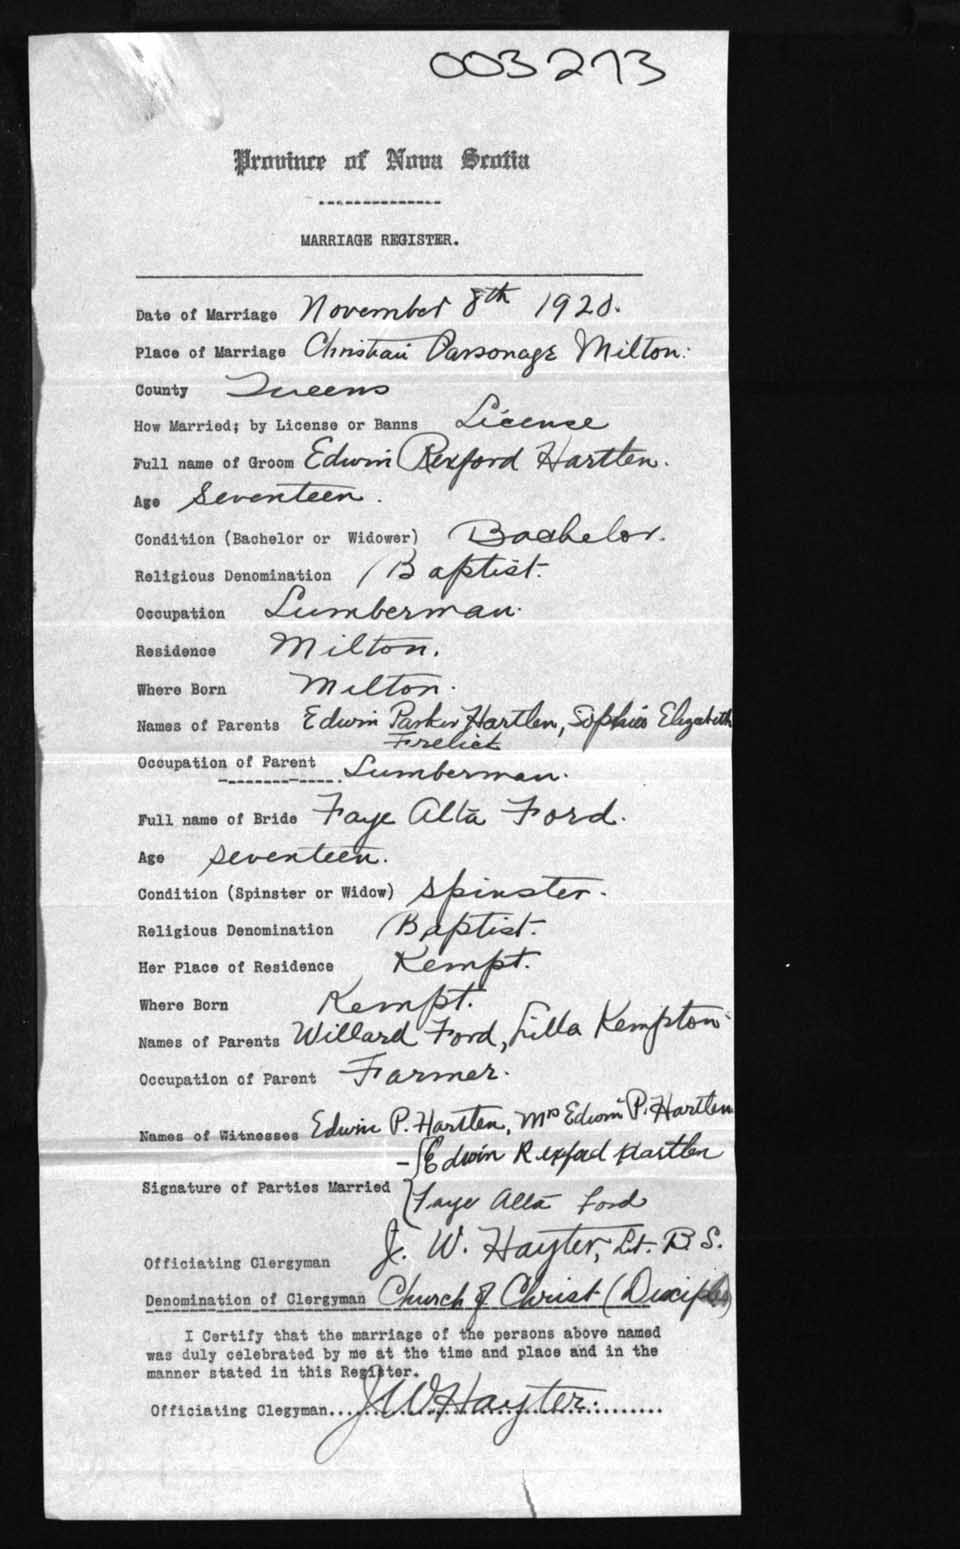 003273
Province of Nova Scotia
MARRIAGE REGISTER.
Date of Marriage November 8th 1920.
Place of Marriage Christian Parsonage Milton.
County Queens
How Married; by License or Banns License
Full name of Groom Edwin Rexford Hartlen.
Age Seventeen.
Condition (Bachelor or Widower) Bachelor.
Religious Denomination Baptist.
Occupation Lumberman.
Residence Milton.
Where Born Milton.
Names of Parents Edwin Parker Hartlen, Sophia Elizabeth
Frelick
Occupation of Parent Lumberman.
Full name of Bride Faye Alta Ford.
Age seventeen.
Condition (Spinster or Widow) Spinster.
Religious Denomination Baptist.
Her Place of Residence Kempt.
Where Born Kempt.
Names of Parents Willard Ford, Lilla Kempton
Occupation of Parent Farmer.
Names of Witnesses Edwin P. Hartlen, Mrs Edwin P. Hartlen
Edwin Rexford Hartlen
Signature of Parties Married
Faye Alta Ford
Officiating Clergyman J. W. Hayter, Lt. B S.
Denomination of Clergyman Church of Christ (Disciples)
I Certify that the marriage of the persons above named
was duly celebrated by me at the time and place and in the
manner stated in this Register.
Officiating Clegyman.... J W Hayter.........